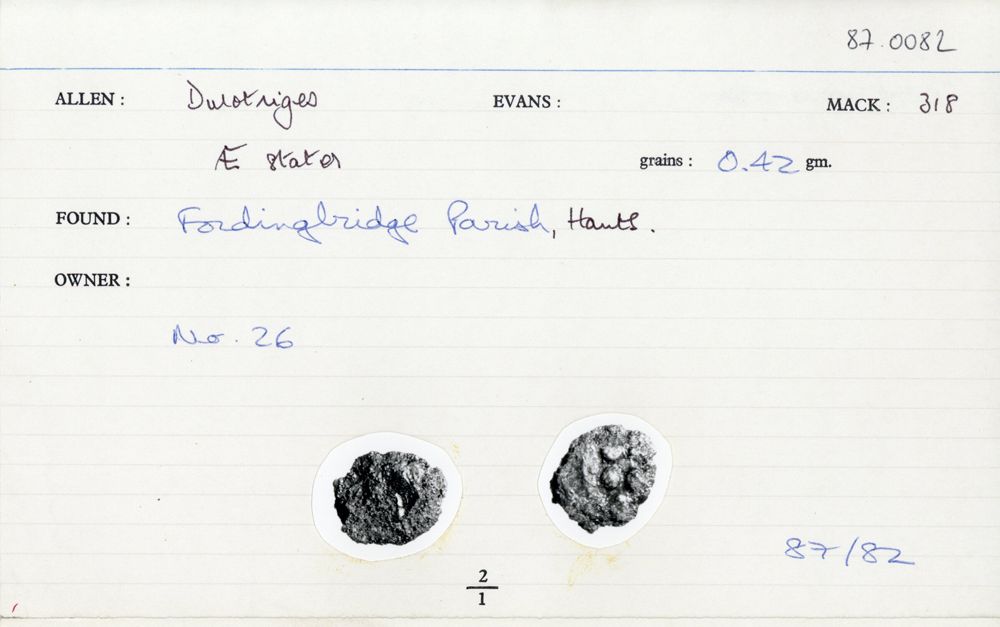 87.0082
ALLEN : Durotriges EVANS : MACK : 318
Æ stater grains : 0.42 gm.
FOUND : Fordingbridge Parish, Hants.
OWNER :
No. 26
87/82
2
1